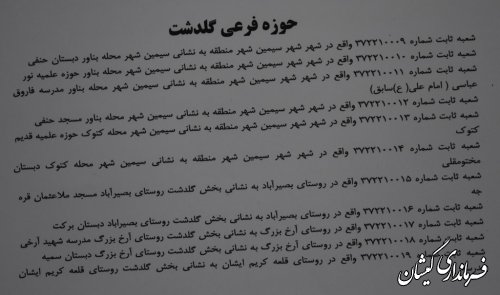 حوزه فرعی گلدشت
شعبه ثابت شماره ۳۷۲۲۱۰۰۰۹ واقع در شهر شهر سیمین شهر منطقه به نشانی سیمین شهر محله بناور دبستان حنفی
شعبه ثابت شماره ۳۷۲۲۱۰۰۱۰ واقع در شهر شهر سیمین شهر منطقه به نشانی سیمین شهر محله بناور حوزه علمیه نور
شعبه ثابت شماره ۳۷۲۲۱۰۰۱۱ واقع در شهر شهر سیمین شهر منطقه به نشانی سیمین شهر محله بناور مدرسه فاروق
عباسی ( امام علی( ع)سابق)
شعبه ثابت شماره ۳۷۲۲۱۰۰۱۲ واقع در شهر شهر سیمین شهر منطقه به نشانی سیمین شهر محله بناور مسجد حنفی
شعبه ثابت شماره ۳۷۲۲۱۰۰۱۳ واقع در شهر شهر سیمین شهر منطقه به نشانی سیمین شهر محله کتوک حوزه علمیه قدیم
کتوک
شعبه ثابت شماره ۳۷۲۲۱۰۰۱۴ واقع در شهر شهر سیمین شهر منطقه به نشانی سیمین شهر محله کتوک دبستان
مختومقلی
شعبه ثابت شماره ۳۷۲۲۱۰۰۱۵ واقع در روستای بصیرآباد به نشانی بخش گلدشت روستای بصیرآباد مسجد ملاعثمان قره
جه
شعبه ثابت شماره ۳۷۲۲۱۰۰۱۶ واقع در روستای بصیرآباد به نشانی بخش گلدشت روستای بصیرآباد دبستان برکت
شعبه ثابت شماره ۳۷۲۲۱۰۰۱۷ واقع در روستای آرخ بزرگ به نشانی بخش گلدشت روستای آرخ بزرگ مدرسه شهید آرخی
شعبه ثابت شماره ۳۷۲۲۱۰۰۱۸ واقع در روستای آرخ بزرگ به نشانی بخش گلدشت روستای آرخ بزرگ دبستان سمیه
شعبه ثابت شماره ۳۷۲۲۱۰۰۱۹ واقع در روستای قلعه کریم ایشان به نشانی بخش گلدشت روستای قلعه کریم ایشان
فرمانداری گمیشان